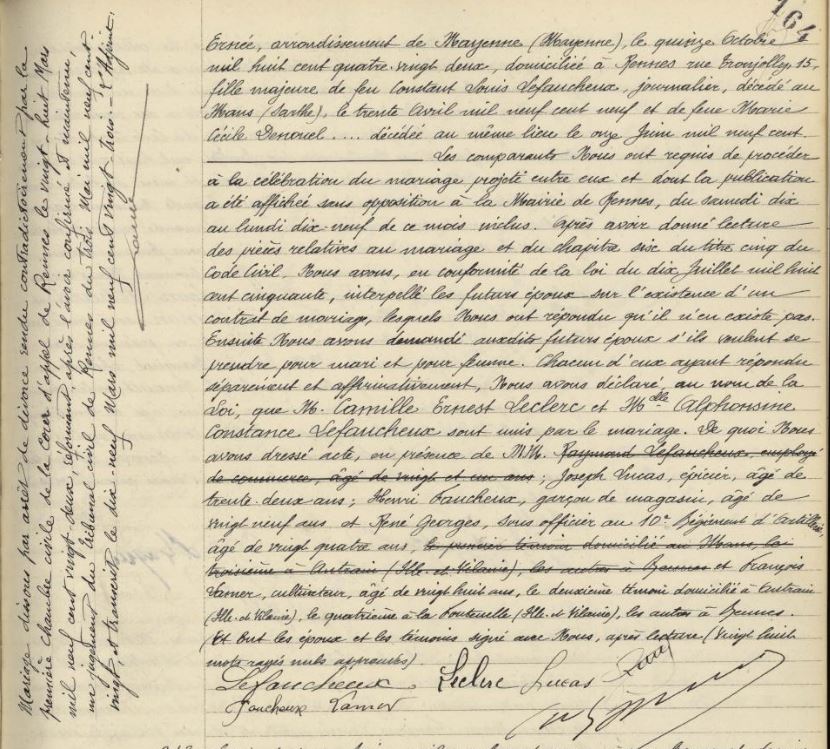 164
Ernée, arrondissement de Mayenne (Mayenne), le quinze Octobre
mil huit cent quatre-vingt deux, domiciliée à Rennes rue Tronjolly, 15,
fille majeure de feu Constant Louis Lefaucheux, journalier, décédé au
Mans (Sarthe), le trente Avril mil neuf cent neuf et de feue Marie
Cécile Denouel .... décédée au même lieu le onze Juin mil neuf cent
Les comparants Nous ont requis de procéder
à la célébration du mariage projeté entre eux et dont la publication
a été affichée sans opposition à la Mairie de Rennes, du samedi dix
au lundi dix-neuf de ce mois inclus. Après avoir donné lecture
des pièces relatives au mariage et du chapitre six du titre cinq du
Code Civil, Nous avons, en conformité de la loi du dix Juillet mil huit
cent cinquante, interpellé les futurs époux sur l'existence d'un
contrat de mariage, lesquels Nous ont répondu qu'il n'en existe pas.
Ensuite Nous avons demandé auxdits futurs époux s'ils veulent se
prendre pour mari et pour femme. Chacun d'eux ayant répondu
séparément et affirmativement, Nous avons déclaré, au nom de la
Loi, que M. Camille Ernest Leclerc et Mlle Alphonsine
Constance Lefaucheux sont unis par le mariage. De quoi Nous
avons dressé acte, en présence de MM. Raymond Lefaucheux, employé
de commerce, âgé de vingt et un ans ; Joseph Lucas, épicier, âgé de
trente-deux ans ; Henri Faucheux, garçon de magasin, âgé de
vingt neuf ans et René Georges, sous officier au 10e Régiment d'Artillerie,
âgé de vingt quatre ans, le premier témoin domicilié au Mans, le
troisième à Antrain (Ille-et-Vilaine), les autres à Rennes et François
Tamer, cultivateur, âgé de vingt huit ans, le deuxième témoin domicilié à Antrain
(Ille-et-Vilaine), le quatrième à la Fontenelle (Ille-et-Vilaine), les autres à Rennes.
Et ont les époux et les témoins signé avec Nous, après lecture (vingt huit
mots rayés nuls approuvés).
Lefaucheux Leclerc Lucas
Faucheux Tamer
Mariage dissous par arrêt de divorce rendu contradictoirement par la
première chambre civile de la cour d'appel de Rennes le vingt-huit Mars
mil neuf cent vingt deux, réformant, après l'avoir confirmé et maintenu,
un jugement du Tribunal civil de Rennes du trois Mai mil neuf cent
vingt, et transcrit le dix-neuf Mars mil neuf cent vingt trois.